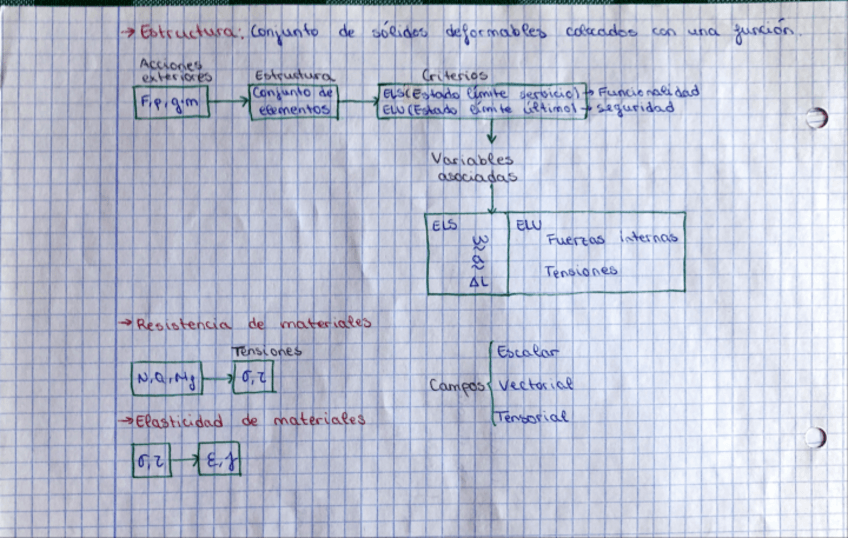 → Estructura: Conjunto de sólidos deformables colocados con una función.
Acciones
exteriores
Estructura
Criterios
F, p, q·m
Conjunto de
elementos
ELS (Estado límite servicio) → Funcionalidad
ELU (Estado límite último) → seguridad
Variables
asociadas
ELS
ELU
Fuerzas internas
Tensiones
ΔL
→ Resistencia de materiales
Tensiones
N, Q, Mf → σ, τ
Campos
Escalar
Vectorial
Tensorial
→ Elasticidad de materiales
σ, τ → ε, γ